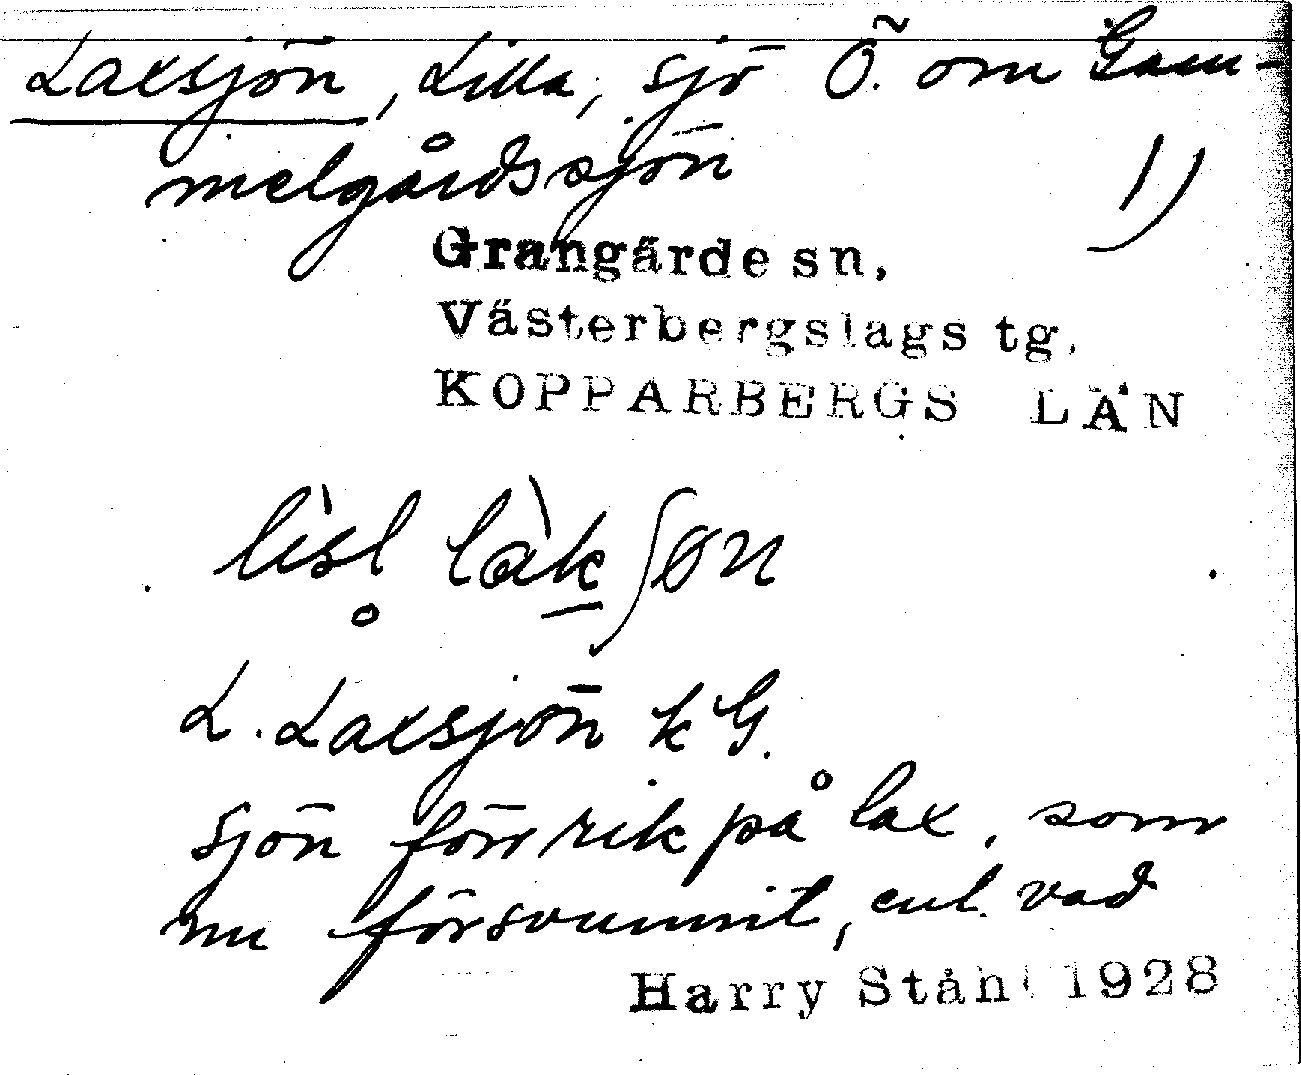 Laxsjön, Lilla, sjö Ö. om Gam-
melgårdssjön 1)
Grangärde sn,
Västerbergslags tg.
KOPPARBERGS LÄN
L. Laxsjön k G.
sjön förr rik på lax, som
nu försvunnit, enl. vad
Harry Ståhl 1928